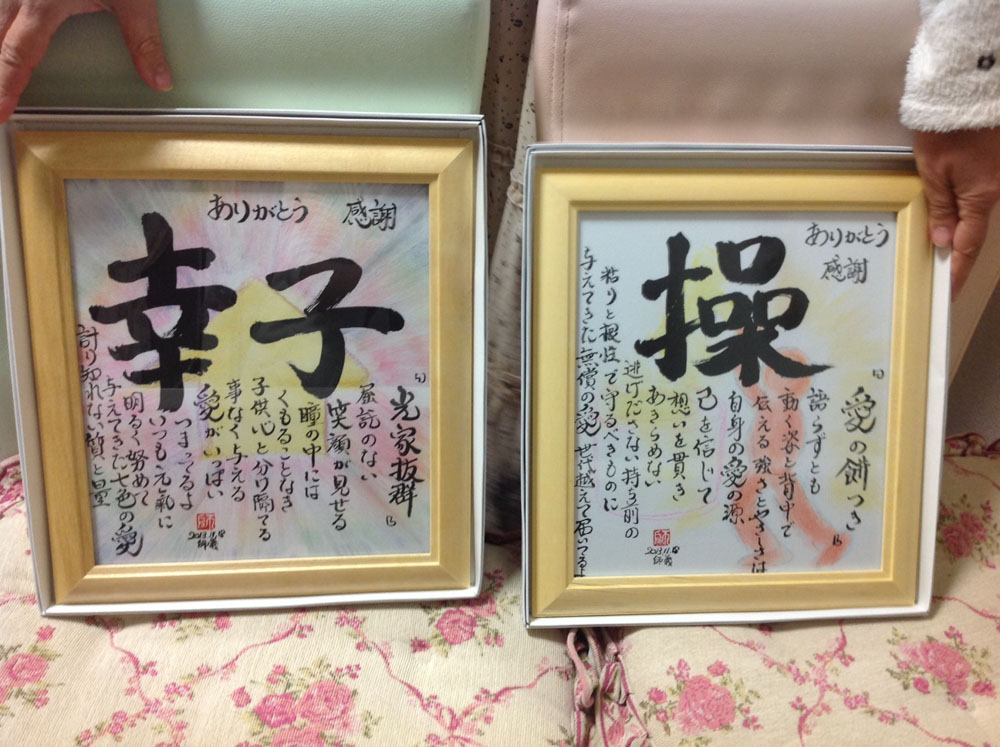 ありがとう
感謝
幸子
光家抜群
屈託のない
笑顔が見せる
瞳の中には
くもることなき
子供心と分け隔てる
事なく与える
愛がいっぱい
つまってるよ
いつも元氣に
明るく努めて
与えてきた七色の愛
計り知れない質と量
2013.11.
ありがとう
感謝
操
愛の餅つき
語らずとも
動く姿と背中で
伝える強さとやさしさは
自身の愛の源
己を信じて
想いを貫き
あきらめない
逃げださない持ち前の
粘りと根性で守るべきものに
与えてきた無償の愛世代越えて届いてるよ
2013.11.